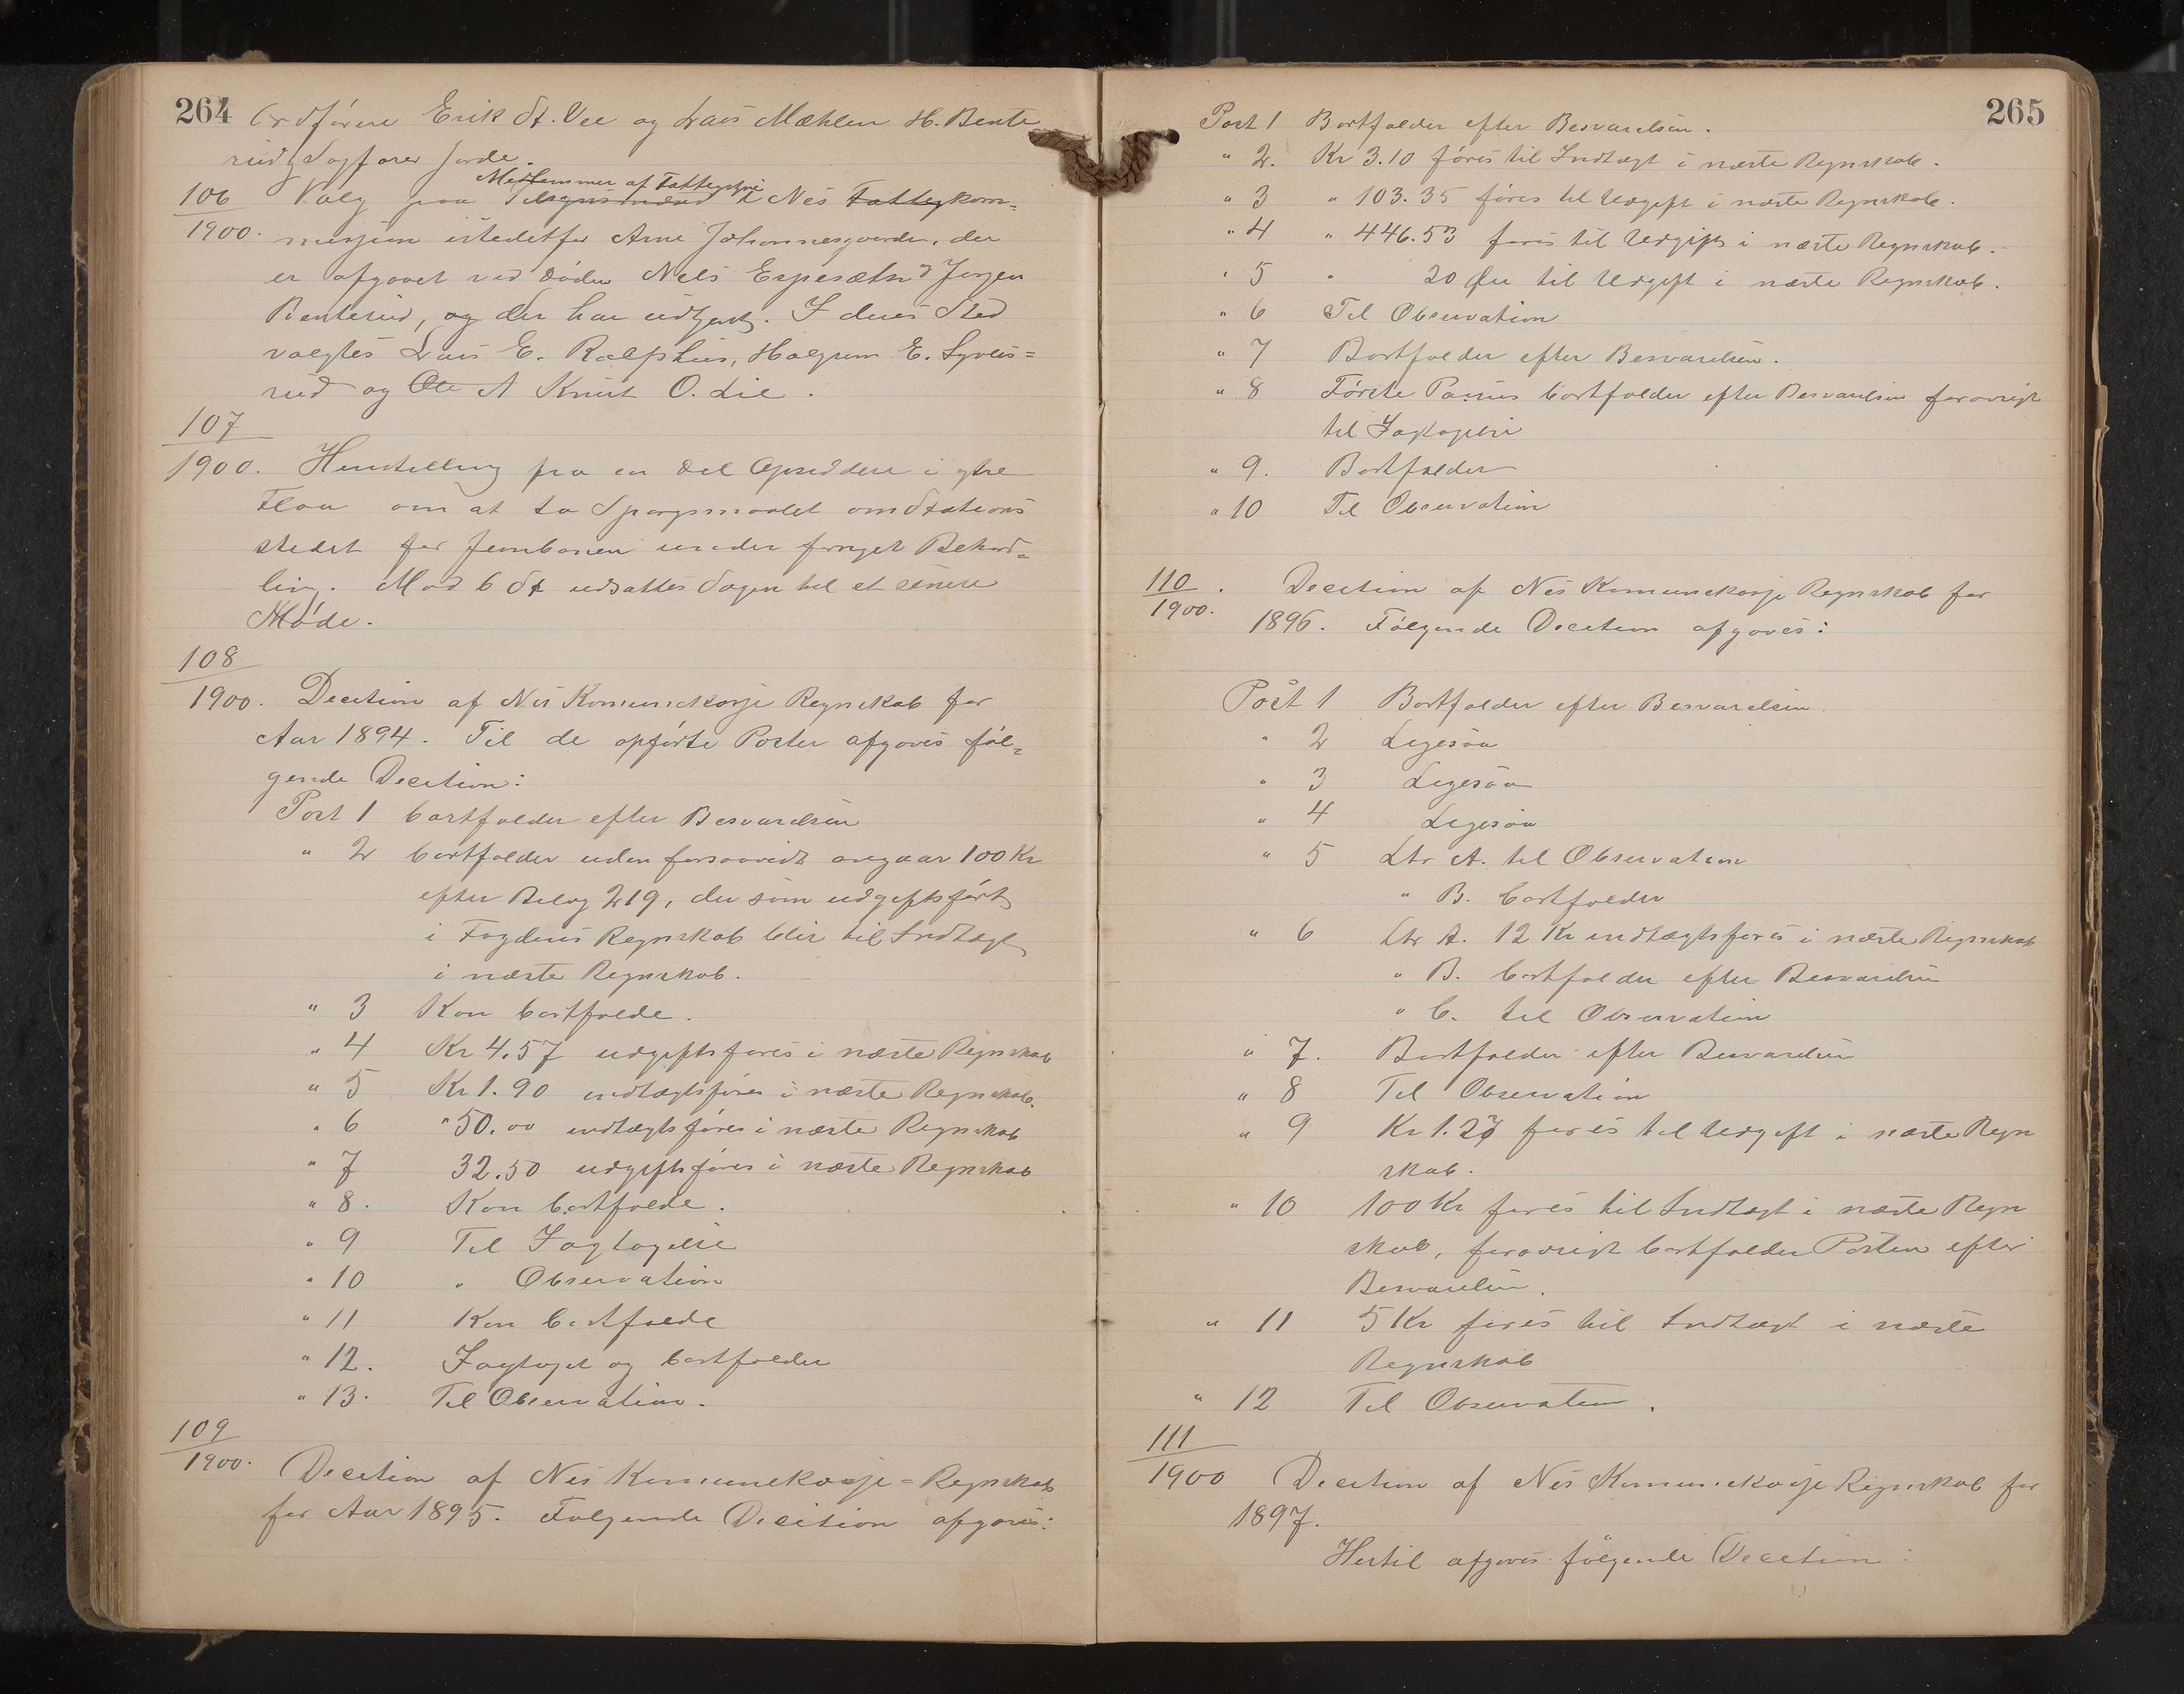 264
Ordförere Erik St. Vee og Lars Mæhlen H. Bente
rud, Sagfører Jorde.
106
1900.
Medlemmer af Fattigstyre
Valg paa Tilsynsmænd i Nes Fattigkom=
missjon istedetfor Arne Johannesgaarden, der
er afgaaet ved Døden Nels Espesætn og Jørgen
Benterud, og der har udtjent. I deres Sted
valgtes Lars E. Ralphus, Halgrim E.
rud og Ole A Knut O. Lie.
107
1900. Henstilling fra en Del Opsiddere i ytre
Flaa om at ta Spørgsmaalet om Stations
stedet for Jernbanen under fornyet Behand=
ling. Mod 6 St udsattes Sagen til et senere
Møde.
108
1900. Decition af Nes Komunekasse Regnskab for
Aar 1894. Til de opførte Poster afgaves føl=
gende Decition:
Post 1 bortfalder efter Besvarelsen
" 2 bortfalder uden forsaavidt angaar 100 Kr
efter Bilag 219, der som udgiftsført
i Fogdens Regnskab blir til Indtægt
i næste Regnskab.
" 3 Kan bortfalde.
" 4 Kr 4.57 udgiftsføres i næste Regnskab
" 5 Kr 1.90 indtægtsføres i næste Regnskab.
" 6 " 50.00 indtægtsføres i næste Regnskab
" 7 32.50 udgiftsføres i næste Regnskab
" 8. Kan bortfalde.
" 9 Til Iagtagelse
" 10 " Observation
" 11 Kan bortfalde
" 12. Iagtaget og bortfalder
" 13. Til Observation.
109
1900. Decition af Nes Komunekasse=Regnskab
for Aar 1895. Følgende Decition afgaves:
265
Post 1 Bortfalder efter Besvarelsen.
" 2. Kr 3.10 føres til Indtægt i næste Regnskab.
" 3 " 103.35 føres til Udgift i næste Regnskab.
" 4 " 446.53 føres til Udgift i næste Regnskab.
" 5 " 20 Øre til Udgift i næste Regnskab.
" 6 Til Observation
" 7 Bortfalder efter Besvarelsen.
" 8 Første Passus bortfalder efter Besvarelsen forøvrigt
til Iagtagelse
" 9. Bortfalder
" 10 Til Observation
110
1900. Decition af Nes Komunekasje Regnskab for
1896. Følgende Decition afgaves:
Post 1 Bortfalder efter Besvarelsen
" 2 Ligesaa
" 3 Ligesaa
" 4 Ligesaa
" 5 Ltr A. til Observation
" B. bortfalder
" 6 Ltr A. 12 Kr indtægtsføres i næste Regnskab
" B. bortfalder efter Besvarelsen
" C. til Observation
" 7. Bortfalder efter Besvarelsen
" 8 Til Observation
" 9 Kr 1.27 føres til Udgift i næste Regn
skab.
" 10 100 Kr føres til Indtægt i næste Regn
skab, forøvrigt bortfalder Posten efter
Besvarelsen.
" 11 5 Kr føres til Indtægt i næste
Regnskab
" 12 Til Observation.
111
1900 Decition af Nes Komunekasje Regnskab for
1897.
Hertil afgaves følgende Decition: